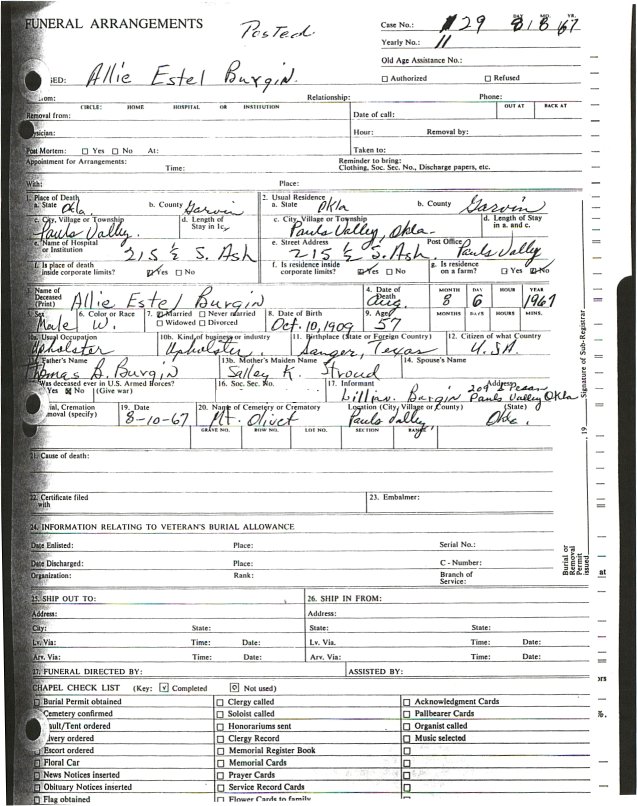 FUNERAL ARRANGEMENTS Posted Case No.: 129 8/8 67
DAY MO. YR.
Yearly No.: 11
Old Age Assistance No.:
SED: Allie Estel Burgin. ☐ Authorized ☐ Refused
From: Relationship: Phone:
CIRCLE: HOME HOSPITAL OR INSTITUTION OUT AT BACK AT
Removal from: Date of call:
Physician: Hour: Removal by:
Post Mortem: ☐ Yes ☐ No At: Taken to:
Appointment for Arrangements: Time: Reminder to bring:
Clothing, Soc. Sec. No., Discharge papers, etc.
With: Place:
1. Place of Death 2. Usual Residence
a. State Okla. b. County Garvin a. State Okla b. County Garvin
c. City, Village or Township Pauls Valley d. Length of Stay in 1c. c. City, Village or Township Pauls Valley, Okla. d. Length of Stay in a. and c.
e. Name of Hospital or Institution 215 ½ S. Ash e. Street Address 215 ½ S. Ash. Post Office Pauls Valley
f. Is place of death inside corporate limits? ☑ Yes ☐ No f. Is residence inside corporate limits? ☑ Yes ☐ No g. Is residence on a farm? ☐ Yes ☑ No
3. Name of Deceased (Print) Allie Estel Burgin 4. Date of Death Aug. MONTH 8 DAY 6 HOUR YEAR 1967
5. Sex Male 6. Color or Race W. 7. ☑ Married ☐ Never married ☐ Widowed ☐ Divorced 8. Date of Birth Oct. 10, 1909 9. Age 57 MONTHS DAYS HOURS MINS.
10a. Usual Occupation Upholster 10b. Kind of business or industry Upholster. 11. Birthplace (State or Foreign Country) Sanger, Texas 12. Citizen of what Country U.S.A.
13a. Father's Name Thomas B. Burgin 13b. Mother's Maiden Name Salley K. Stroud 14. Spouse's Name
Was deceased ever in U.S. Armed Forces? Yes ☒ No (Give war) 16. Soc. Sec. No. 17. Informant Lillian Burgin Address Pauls Valley Okla
Burial, Cremation Removal (specify) 19. Date 8-10-67 20. Name of Cemetery or Crematory Mt. Olivet Location (City, Village or County) Pauls Valley, (State) Okla.
GRAVE NO. ROW NO. LOT NO. SECTION RANGE
21. Cause of death:
22. Certificate filed with 23. Embalmer:
24. INFORMATION RELATING TO VETERAN'S BURIAL ALLOWANCE
Date Enlisted: Place: Serial No.:
Date Discharged: Place: C - Number:
Organization: Rank: Branch of Service:
25. SHIP OUT TO: 26. SHIP IN FROM:
Address: Address:
City: State: State: State:
Lv. Via: Time: Date: Lv. Via: Time: Date:
Arv. Via: Time: Date: Arv. Via: Time: Date:
27. FUNERAL DIRECTED BY: ASSISTED BY:
CHAPEL CHECK LIST (Key: ☑ Completed ⊡ Not used)
☐ Burial Permit obtained ☐ Clergy called ☐ Acknowledgment Cards
Cemetery confirmed ☐ Soloist called ☐ Pallbearer Cards
ault/Tent ordered ☐ Honorariums sent ☐ Organist called
ivery ordered ☐ Clergy Record ☐ Music selected
☐ Escort ordered ☐ Memorial Register Book ☐
☐ Floral Car ☐ Memorial Cards ☐
☐ News Notices inserted ☐ Prayer Cards ☐
☐ Obituary Notices inserted ☐ Service Record Cards ☐
☐ Flag obtained ☐ Flower Cards to family
Signature of Sub-Registrar
, 19
Burial or Removal Permit issued
at
ors
%.